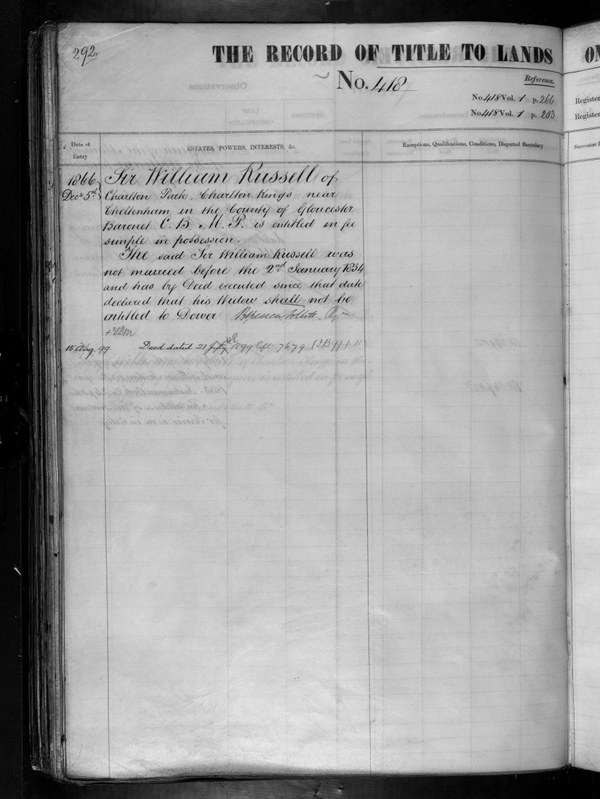 292
THE RECORD OF TITLE TO LANDS
No. 418
Reference.
No. 418 Vol. 1 p. 266
No. 418 Vol. 1 p. 203
Date of Entry
ESTATES, POWERS, INTERESTS, &c.
Exceptions, Qualifications, Conditions, Disputed Boundary
1866
Decr 5th
Sir William Russell of
Charlton Park, Charlton Kings near
Cheltenham in the County of Gloucester
Baronet C. B. M. P. is entitled in fee
simple in possession.
The said Sir William Russell was
not married before the 2nd January 1834
and has by Deed executed since that date
declared that his Widow shall not be
entitled to Dower
15 Aug 99
Deed dated 21 July 1899
ON
Register
Register